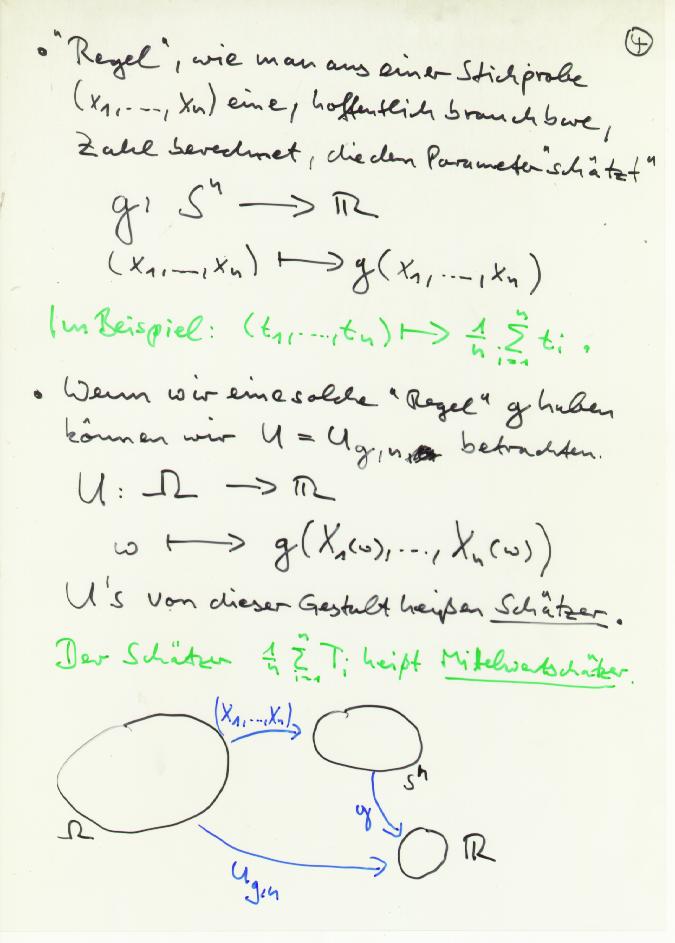 4
• "Regel", wie man aus einer Stichprobe
(x₁, ..., xₙ) eine, hoffentlich brauchbare,
Zahl berechnet, die den Parameter "schätzt"
g: Sⁿ ⟶ ℝ
(x₁, ..., xₙ) ⟼ g(x₁, ..., xₙ)
Im Beispiel: (t₁, ..., tₙ) ⟼ 1/n ∑ᵢ₌₁ⁿ tᵢ .
• Wenn wir eine solche "Regel" g haben
können wir U = U_{g,n} betrachten.
U: Ω ⟶ ℝ
ω ⟼ g(X₁(ω), ..., Xₙ(ω))
U's von dieser Gestalt heißen Schätzer.
Der Schätzer 1/n ∑ᵢ₌₁ⁿ Tᵢ heißt Mittelwertschätzer.
(X₁, ..., Xₙ)
Sⁿ
g
Ω
ℝ
U_{g,n}